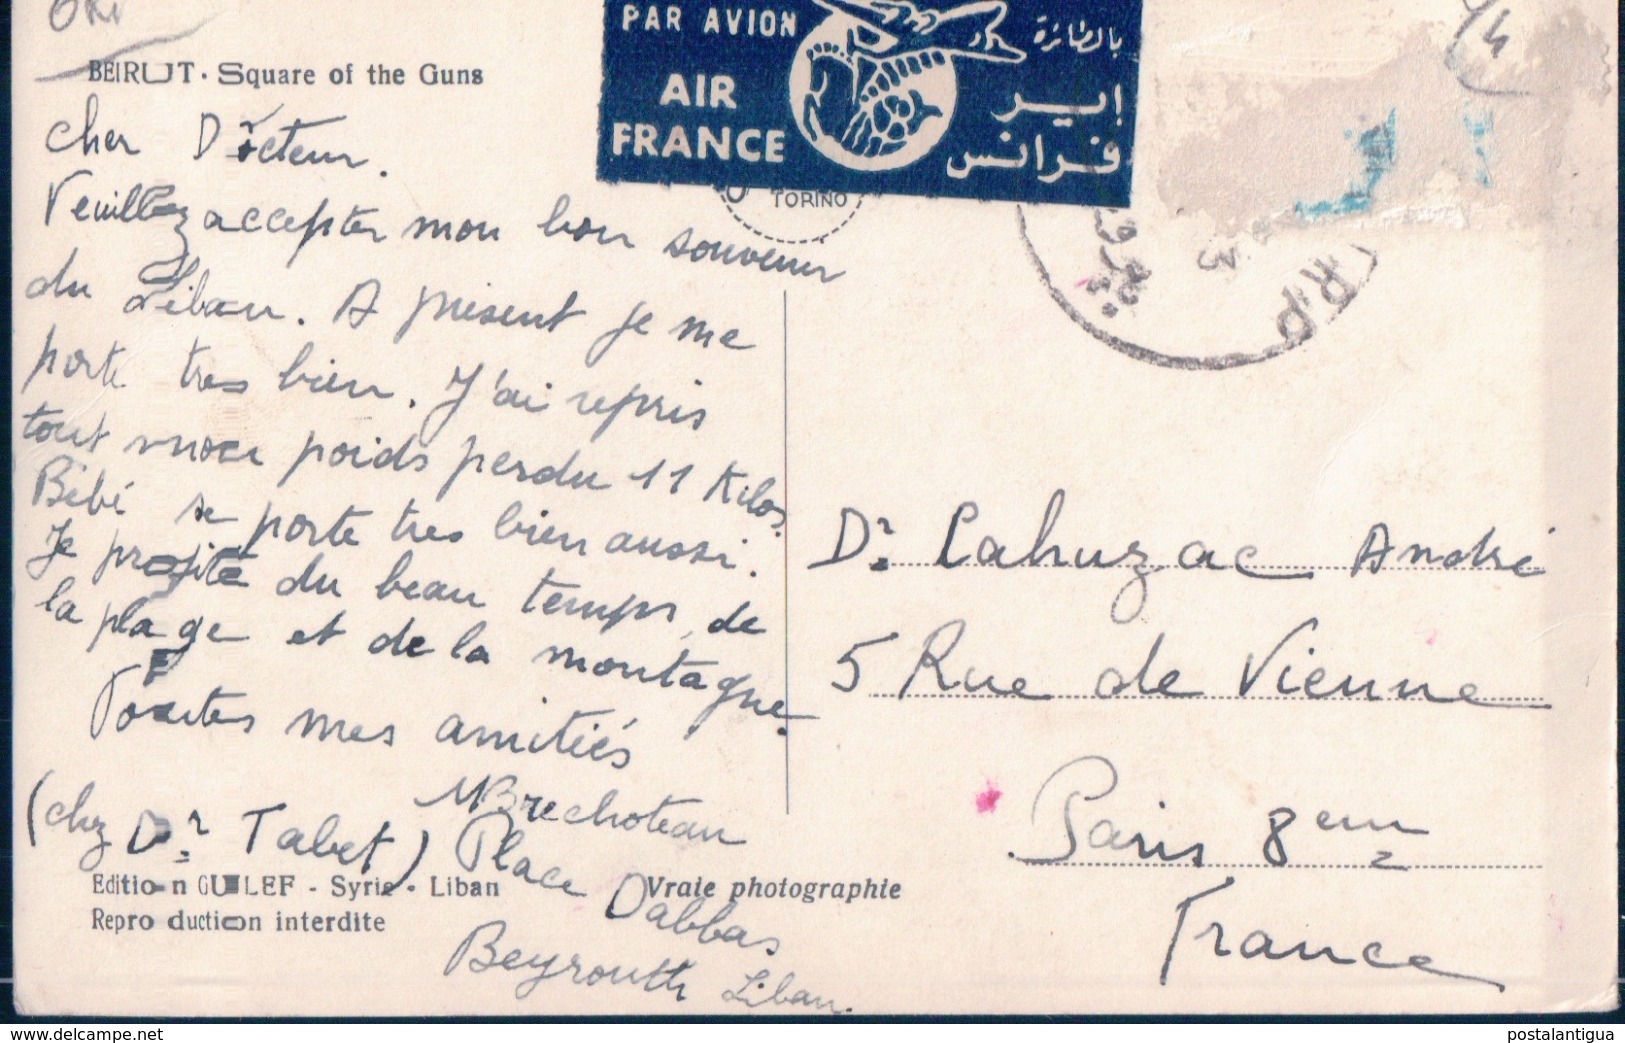 BEIRUT. Square of the Guns
PAR AVION
بالطائرة
AIR
FRANCE
ايـر
فرانس
TORINO
بيروت
RP
cher Docteur.
Veuillez accepter mon bon souvenir
du Liban. A présent je me
porte tres bien. J'ai repris
tout mon poids perdu 11 Kilos.
Bébé se porte tres bien aussi.
Je profite du beau temps, de
la plage et de la montagne.
Toutes mes amitiés
MBrechoteau
(chz Dr Tabet) Place Dabbas
Beyrouth Liban.
Dr. Cahuzac André
5 Rue de Vienne
Paris 8eme
France
Edition GULEF - Syrie - Liban
Vraie photographie
Reproduction interdite
delcampe.net
postalantigua